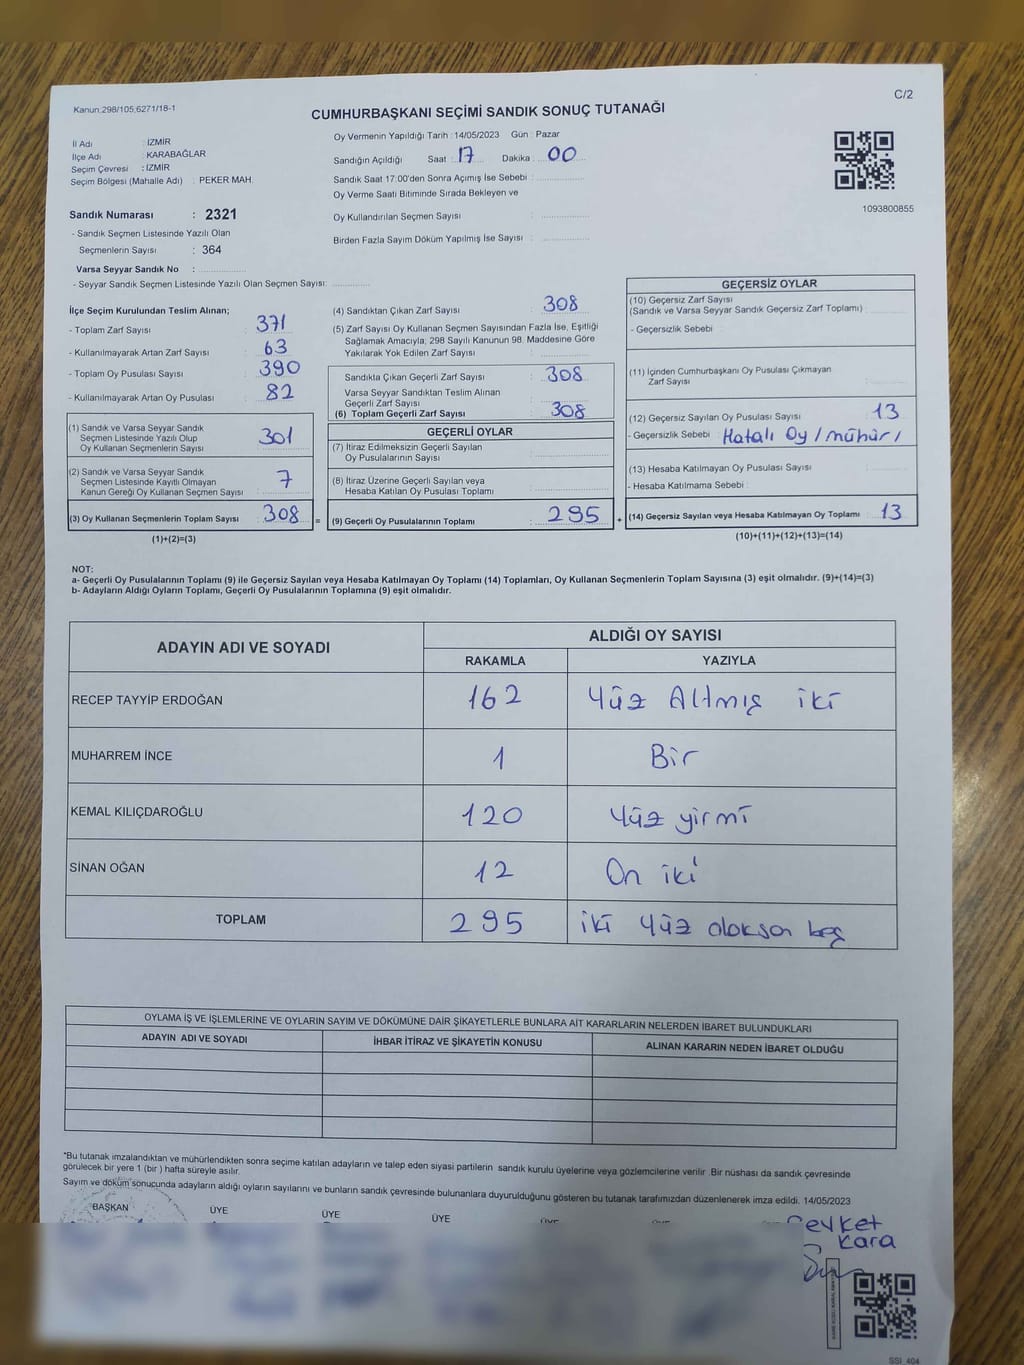 Kanun:298/105,6271/18-1
C/2
CUMHURBAŞKANI SEÇİMİ SANDIK SONUÇ TUTANAĞI
İl Adı : İZMİR
İlçe Adı : KARABAĞLAR
Seçim Çevresi : İZMİR
Seçim Bölgesi (Mahalle Adı) : PEKER MAH.
Oy Vermenin Yapıldığı Tarih : 14/05/2023 Gün : Pazar
Sandığın Açıldığı Saat : 17 Dakika : 00
Sandık Saat 17:00'den Sonra Açımış İse Sebebi :
Oy Verme Saati Bitiminde Sırada Bekleyen ve
Oy Kullandırılan Seçmen Sayısı :
Birden Fazla Sayım Döküm Yapılmış İse Sayısı :
1093800855
Sandık Numarası : 2321
- Sandık Seçmen Listesinde Yazılı Olan
Seçmenlerin Sayısı : 364
Varsa Seyyar Sandık No :
- Seyyar Sandık Seçmen Listesinde Yazılı Olan Seçmen Sayısı:
İlçe Seçim Kurulundan Teslim Alınan;
- Toplam Zarf Sayısı : 371
- Kullanılmayarak Artan Zarf Sayısı : 63
- Toplam Oy Pusulası Sayısı : 390
- Kullanılmayarak Artan Oy Pusulası : 82
(1) Sandık ve Varsa Seyyar Sandık
Seçmen Listesinde Yazılı Olup
Oy Kullanan Seçmenlerin Sayısı : 301
(2) Sandık ve Varsa Seyyar Sandık
Seçmen Listesinde Kayıtlı Olmayan
Kanun Gereği Oy Kullanan Seçmen Sayısı : 7
(3) Oy Kullanan Seçmenlerin Toplam Sayısı : 308
(1)+(2)=(3)
(4) Sandıktan Çıkan Zarf Sayısı : 308
(5) Zarf Sayısı Oy Kullanan Seçmen Sayısından Fazla İse, Eşitliği
Sağlamak Amacıyla; 298 Sayılı Kanunun 98. Maddesine Göre
Yakılarak Yok Edilen Zarf Sayısı :
Sandıkta Çıkan Geçerli Zarf Sayısı : 308
Varsa Seyyar Sandıktan Teslim Alınan
Geçerli Zarf Sayısı :
(6) Toplam Geçerli Zarf Sayısı : 308
GEÇERLİ OYLAR
(7) İtiraz Edilmeksizin Geçerli Sayılan
Oy Pusulalarının Sayısı :
(8) İtiraz Üzerine Geçerli Sayılan veya
Hesaba Katılan Oy Pusulası Toplamı :
= (9) Geçerli Oy Pusulalarının Toplamı : 295
GEÇERSİZ OYLAR
(10) Geçersiz Zarf Sayısı
(Sandık ve Varsa Seyyar Sandık Geçersiz Zarf Toplamı) :
- Geçersizlik Sebebi :
(11) İçinden Cumhurbaşkanı Oy Pusulası Çıkmayan
Zarf Sayısı :
(12) Geçersiz Sayılan Oy Pusulası Sayısı : 13
- Geçersizlik Sebebi : Hatalı Oy / mühürı
(13) Hesaba Katılmayan Oy Pusulası Sayısı :
- Hesaba Katılmama Sebebi :
+ (14) Geçersiz Sayılan veya Hesaba Katılmayan Oy Toplamı : 13
(10)+(11)+(12)+(13)=(14)
NOT:
a- Geçerli Oy Pusulalarının Toplamı (9) ile Geçersiz Sayılan veya Hesaba Katılmayan Oy Toplamı (14) Toplamları, Oy Kullanan Seçmenlerin Toplam Sayısına (3) eşit olmalıdır. (9)+(14)=(3)
b- Adayların Aldığı Oyların Toplamı, Geçerli Oy Pusulalarının Toplamına (9) eşit olmalıdır.
ADAYIN ADI VE SOYADI
ALDIĞI OY SAYISI
RAKAMLA YAZIYLA
RECEP TAYYİP ERDOĞAN 162 Yüz Altmış iki
MUHARREM İNCE 1 Bir
KEMAL KILIÇDAROĞLU 120 Yüz yirmi
SİNAN OĞAN 12 On iki
TOPLAM 295 iki Yüz doksan beş
OYLAMA İŞ VE İŞLEMLERİNE VE OYLARIN SAYIM VE DÖKÜMÜNE DAİR ŞİKAYETLERLE BUNLARA AİT KARARLARIN NELERDEN İBARET BULUNDUKLARI
ADAYIN ADI VE SOYADI İHBAR İTİRAZ VE ŞİKAYETİN KONUSU ALINAN KARARIN NEDEN İBARET OLDUĞU
*Bu tutanak imzalandıktan ve mühürlendikten sonra seçime katılan adayların ve talep eden siyasi partilerin sandık kurulu üyelerine veya gözlemcilerine verilir. Bir nüshası da sandık çevresinde
görülecek bir yere 1 (bir ) hafta süreyle asılır.
Sayım ve döküm sonucunda adayların aldığı oyların sayılarını ve bunların sandık çevresinde bulunanlara duyurulduğunu gösteren bu tutanak tarafımızdan düzenlenerek imza edildi. 14/05/2023
BAŞKAN ÜYE ÜYE ÜYE
Şevket
Kara
SSİ 404